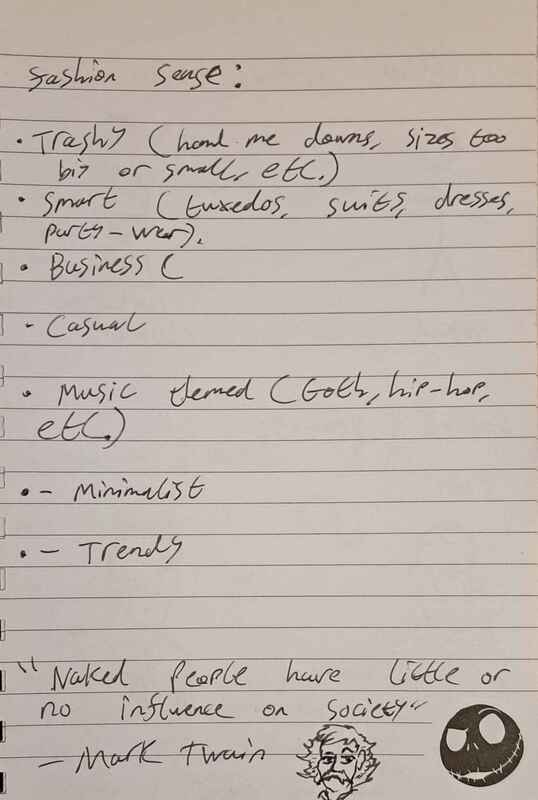 Fashion sense:
• Trashy (hand me downs, sizes too
big or small, etc.)
• Smart (tuxedos, suits, dresses,
party-wear).
• Business (
- Casual
• Music themed (Goth, hip-hop,
etc.)
• - Minimalist
• - Trendy
"Naked people have little or
no influence on society"
- Mark Twain